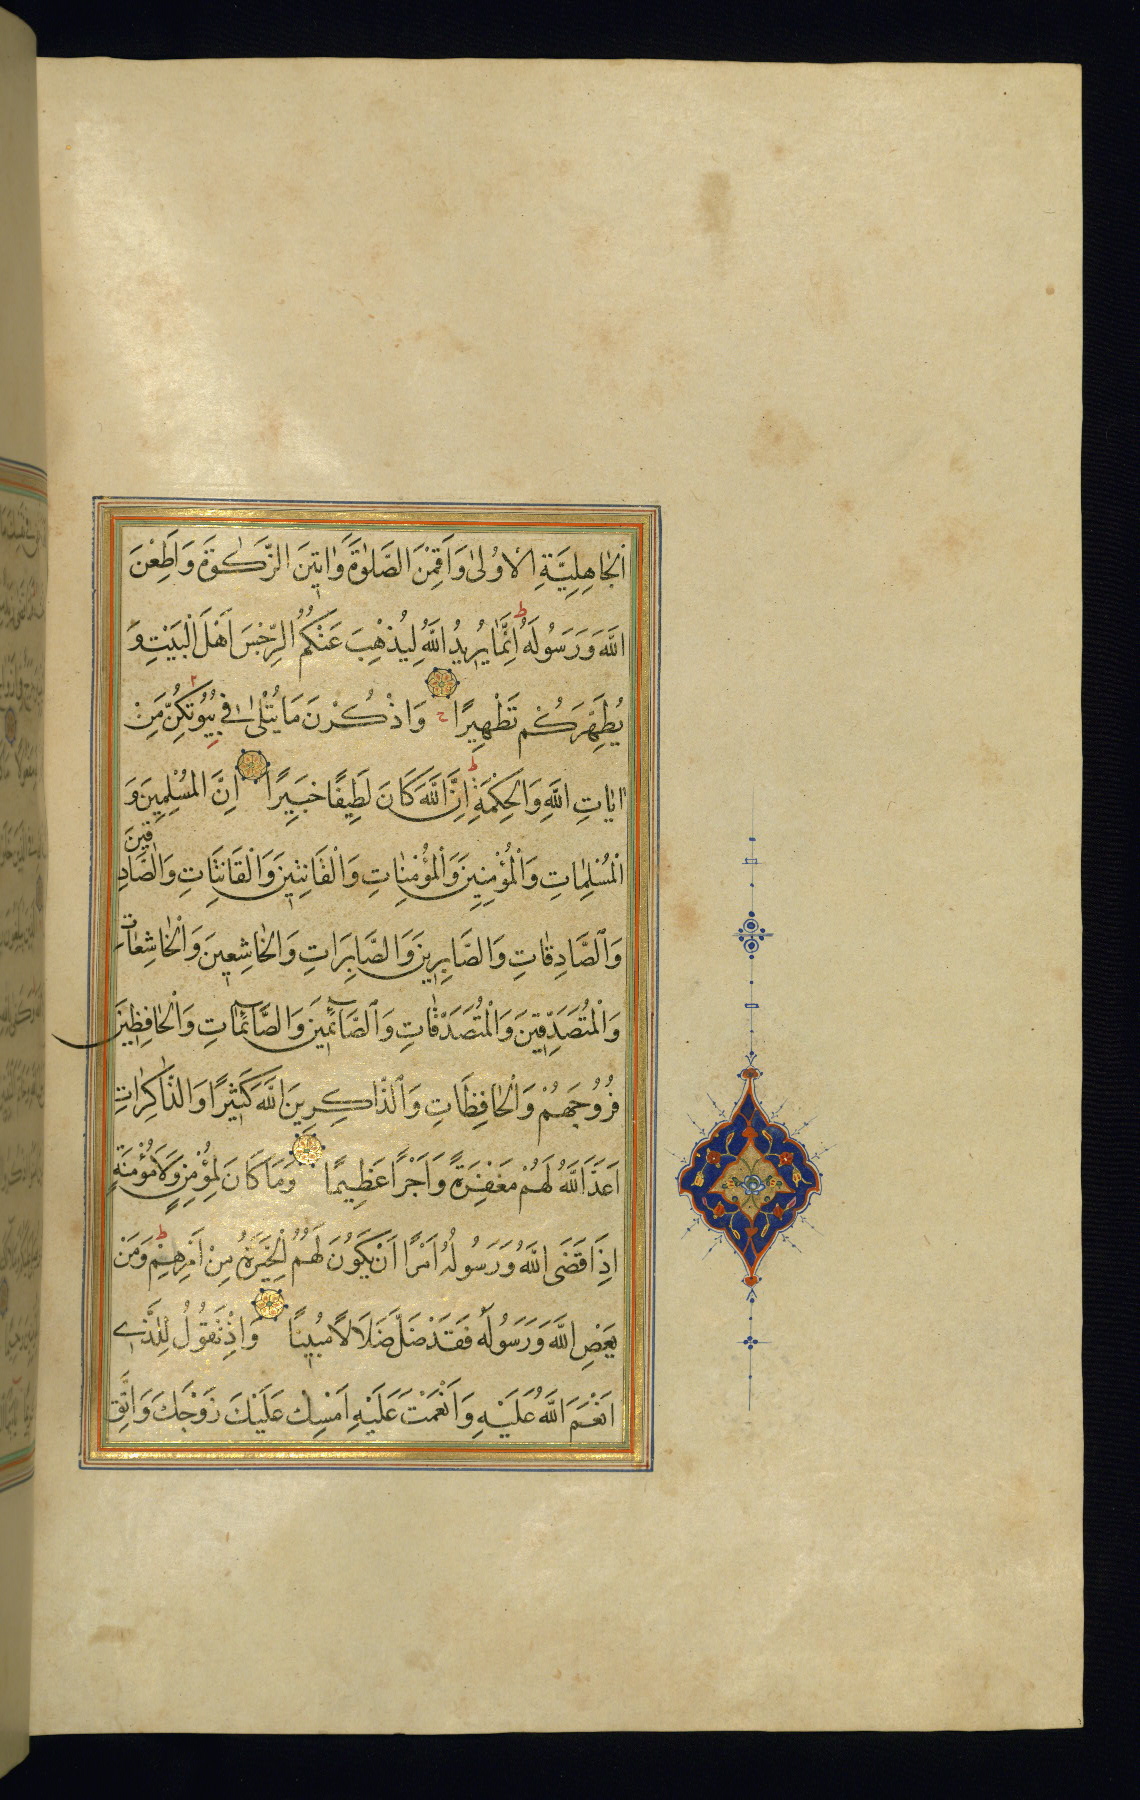 الْجَاهِلِيَّةِ الْاُولىٰ وَاَقِمْنَ الصَّلٰوةَ وَاٰتِينَ الزَّكٰوةَ وَاَطِعْنَ
اللّٰهَ وَرَسُولَهُ ط اِنَّمَا يُرِيدُ اللّٰهُ لِيُذْهِبَ عَنْكُمُ الرِّجْسَ اَهْلَ الْبَيْتِ وَ
يُطَهِّرَكُمْ تَطْهِيرًا ح وَاذْكُرْنَ مَا يُتْلىٰ فِي بُيُوتِكُنَّ مِنْ
اٰيَاتِ اللّٰهِ وَالْحِكْمَةِ ط اِنَّ اللّٰهَ كَانَ لَطِيفًا خَبِيرًا اِنَّ الْمُسْلِمِينَ وَ
الْمُسْلِمَاتِ وَالْمُؤْمِنِينَ وَالْمُؤْمِنَاتِ وَالْقَانِتِينَ وَالْقَانِتَاتِ وَالصَّادِقِينَ
وَالصَّادِقَاتِ وَالصَّابِرِينَ وَالصَّابِرَاتِ وَالْخَاشِعِينَ وَالْخَاشِعَاتِ
وَالْمُتَصَدِّقِينَ وَالْمُتَصَدِّقَاتِ وَالصَّائِمِينَ وَالصَّائِمَاتِ وَالْحَافِظِينَ
فُرُوجَهُمْ وَالْحَافِظَاتِ وَالذَّاكِرِينَ اللّٰهَ كَثِيرًا وَالذَّاكِرَاتِ
اَعَدَّ اللّٰهُ لَهُمْ مَغْفِرَةً وَاَجْرًا عَظِيمًا وَمَا كَانَ لِمُؤْمِنٍ وَلَا مُؤْمِنَةٍ
اِذَا قَضَى اللّٰهُ وَرَسُولُهُ اَمْرًا اَنْ يَكُونَ لَهُمُ الْخِيَرَةُ مِنْ اَمْرِهِمْ ط وَمَنْ
يَعْصِ اللّٰهَ وَرَسُولَهُ فَقَدْ ضَلَّ ضَلَالًا مُبِينًا وَاِذْ تَقُولُ لِلَّذِي
اَنْعَمَ اللّٰهُ عَلَيْهِ وَاَنْعَمْتَ عَلَيْهِ اَمْسِكْ عَلَيْكَ زَوْجَكَ وَاتَّقِ